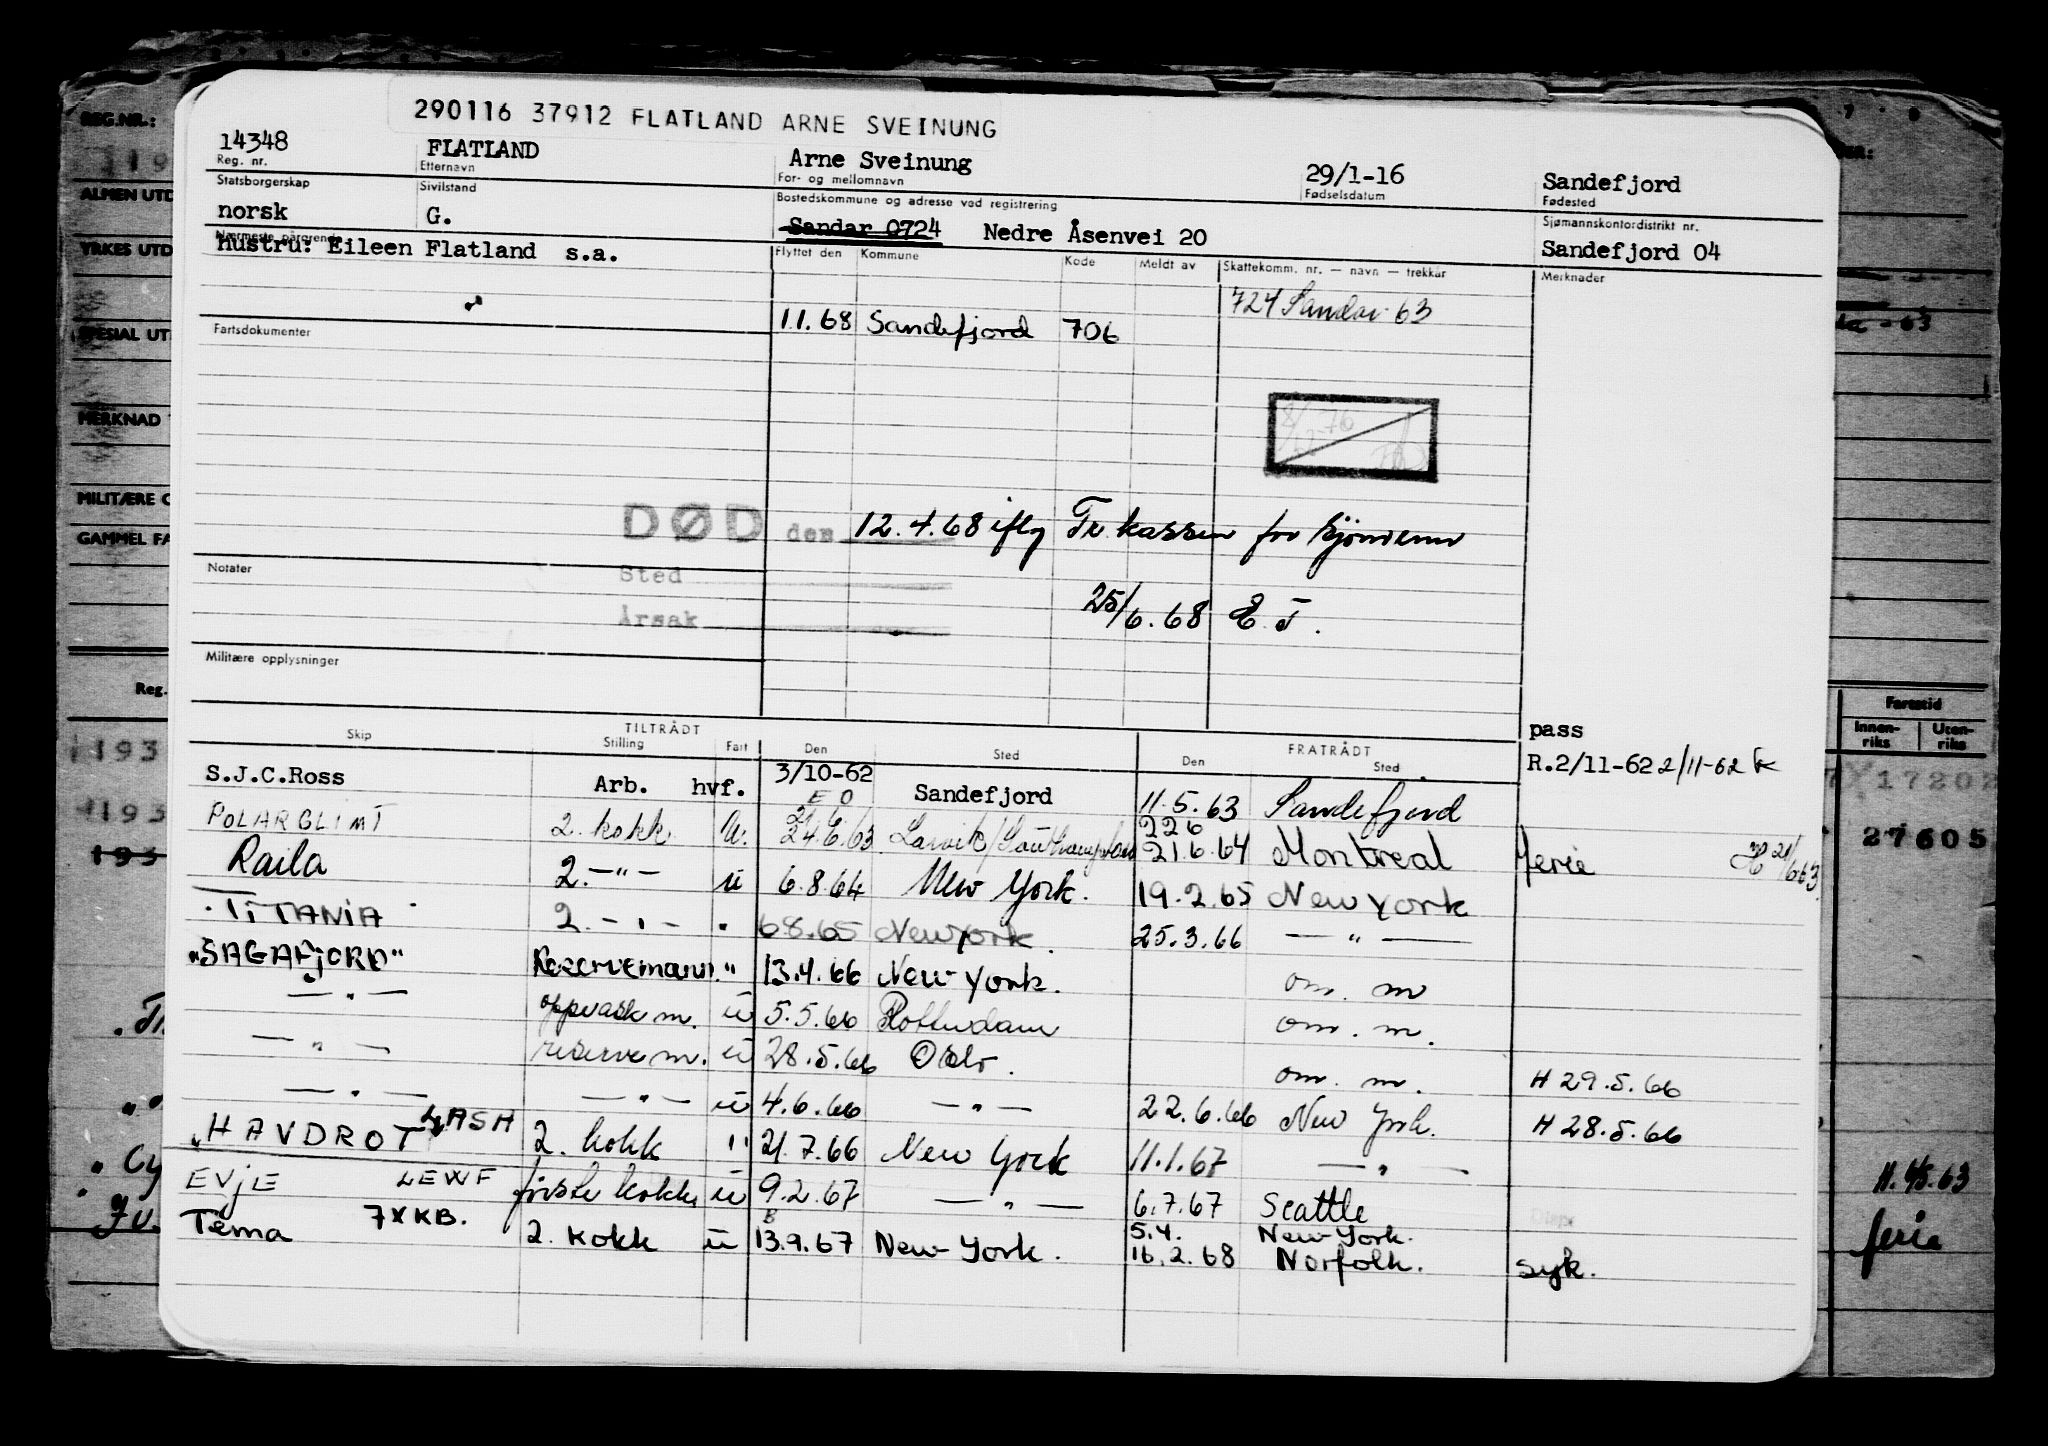 290116 37912 FLATLAND ARNE SVEINUNG
14348 FLATLAND Arne Sveinung 29/1-16 Sandefjord
Reg. nr. Etternavn For- og mellomnavn Fødselsdatum Fødested
Statsborgerskap Sivilstand Bostedskommune og adresse ved registrering Sjømannskontordistrikt nr.
norsk G. Sandar 0724 Nedre Åsenvei 20 Sandefjord 04
Nærmeste pårørende
hustru: Eileen Flatland s.a.
Flyttet den Kommune Kode Meldt av Skattekomm. nr. — navn — trekkår Merknader
724 Sandar 63
11.68 Sandefjord 706
Fartsdokumenter
DØD den 12.4.68 iflg Tr. kassen for sjømenn
Notater
Sted
25/6.68 E T.
Årsak
Militære opplysninger
pass
Skip TILTRÅDT Stilling Fart Den Sted FRATRÅDT Den Sted
R.2/11-62 2/11-62
S.J.C.Ross Arb. hvf. 3/10-62 Sandefjord 11.5.63 Sandefjord
POLARGLIMT 2. kokk u. 24.6.63 Larvik/Southampton 21.6.64 Montreal ferie
Raila 2. —"— u 6.8.64 New York. 19.2.65 New York
TITANIA 2. —"— " 6.8.65 New York. 25.3.66 —"—
"SAGAFJORD" Reservemann. " 13.4.66 New York. om. m
—"— oppvask m. u 5.5.66 Rotterdam om. m.
—"— reserve m. u 28.5.66 Oslo. om. m. H 29.5.66
—"— —"— u 4.6.66 —"— 22.6.66 New York. H 28.5.66
"HAVDROTT" LASH 2. kokk " 21.7.66 New York 11.1.67 —"—
EVJE LEWF første kokk u 9.2.67 —"— 6.7.67 Seattle
5.4. New York.
Tema 7XKB. 2. kokk u 13.9.67 New York. 16.2.68 Norfolk. syk.
REG.NR.:
ALMEN UTD
YRKES UTD
SPESIAL UT
MERKNAD
MILITÆRE
GAMMEL FA
Reg.
Fartstid
Innen-riks Uten-riks
193
17202
193
27605
193
11.5.63
ferie